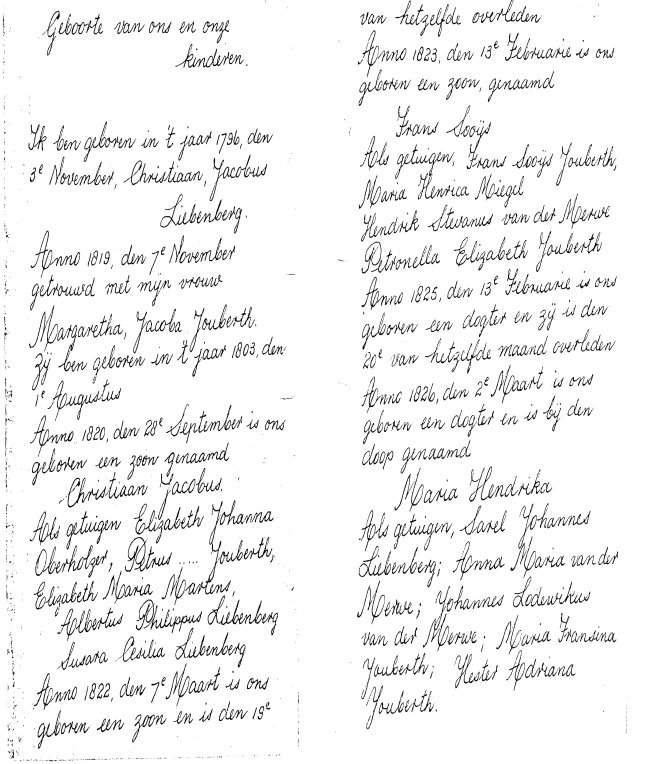 Geboorte van ons en onze
kinderen.
Ik ben geboren in 't jaar 1796, den
3e November, Christiaan, Jacobus
Liebenberg.
Anno 1819, den 7e November
getrouwd met mijn vrouw
Margaretha, Jacoba Youberth.
Zij ben geboren in 't jaar 1803, den
1e Augustus
Anno 1820, den 28e September is ons
geboren een zoon genaamd
Christiaan Jacobus.
Als getuigen Elizabeth Johanna
Oberholzer, Petrus ..... Youberth,
Elizabeth Maria Martens,
Albertus Philippus Liebenberg
Susara Cesilia Liebenberg
Anno 1822, den 7e Maart is ons
geboren een zoon en is den 19e
van hetzelfde overleden
Anno 1823, den 13e Februarie is ons
geboren een zoon, genaamd
Frans Sooijs
Als getuigen, Frans Sooijs Youberth,
Maria Henrica Miegel
Hendrik Stevanus van der Merwe
Petronella Elizabeth Youberth
Anno 1825, den 13e Februarie is ons
geboren een dogter en zij is den
20e van hetzelfde maand overleden
Anno 1826, den 2e Maart is ons
geboren een dogter en is bij den
doop genaamd
Maria Hendrika
Als getuigen, Sarel Yohannes
Liebenberg; Anna Maria van der
Merwe; Yohannes Lodewikus
van der Merwe; Maria Fransina
Youberth; Hester Adriana
Youberth.